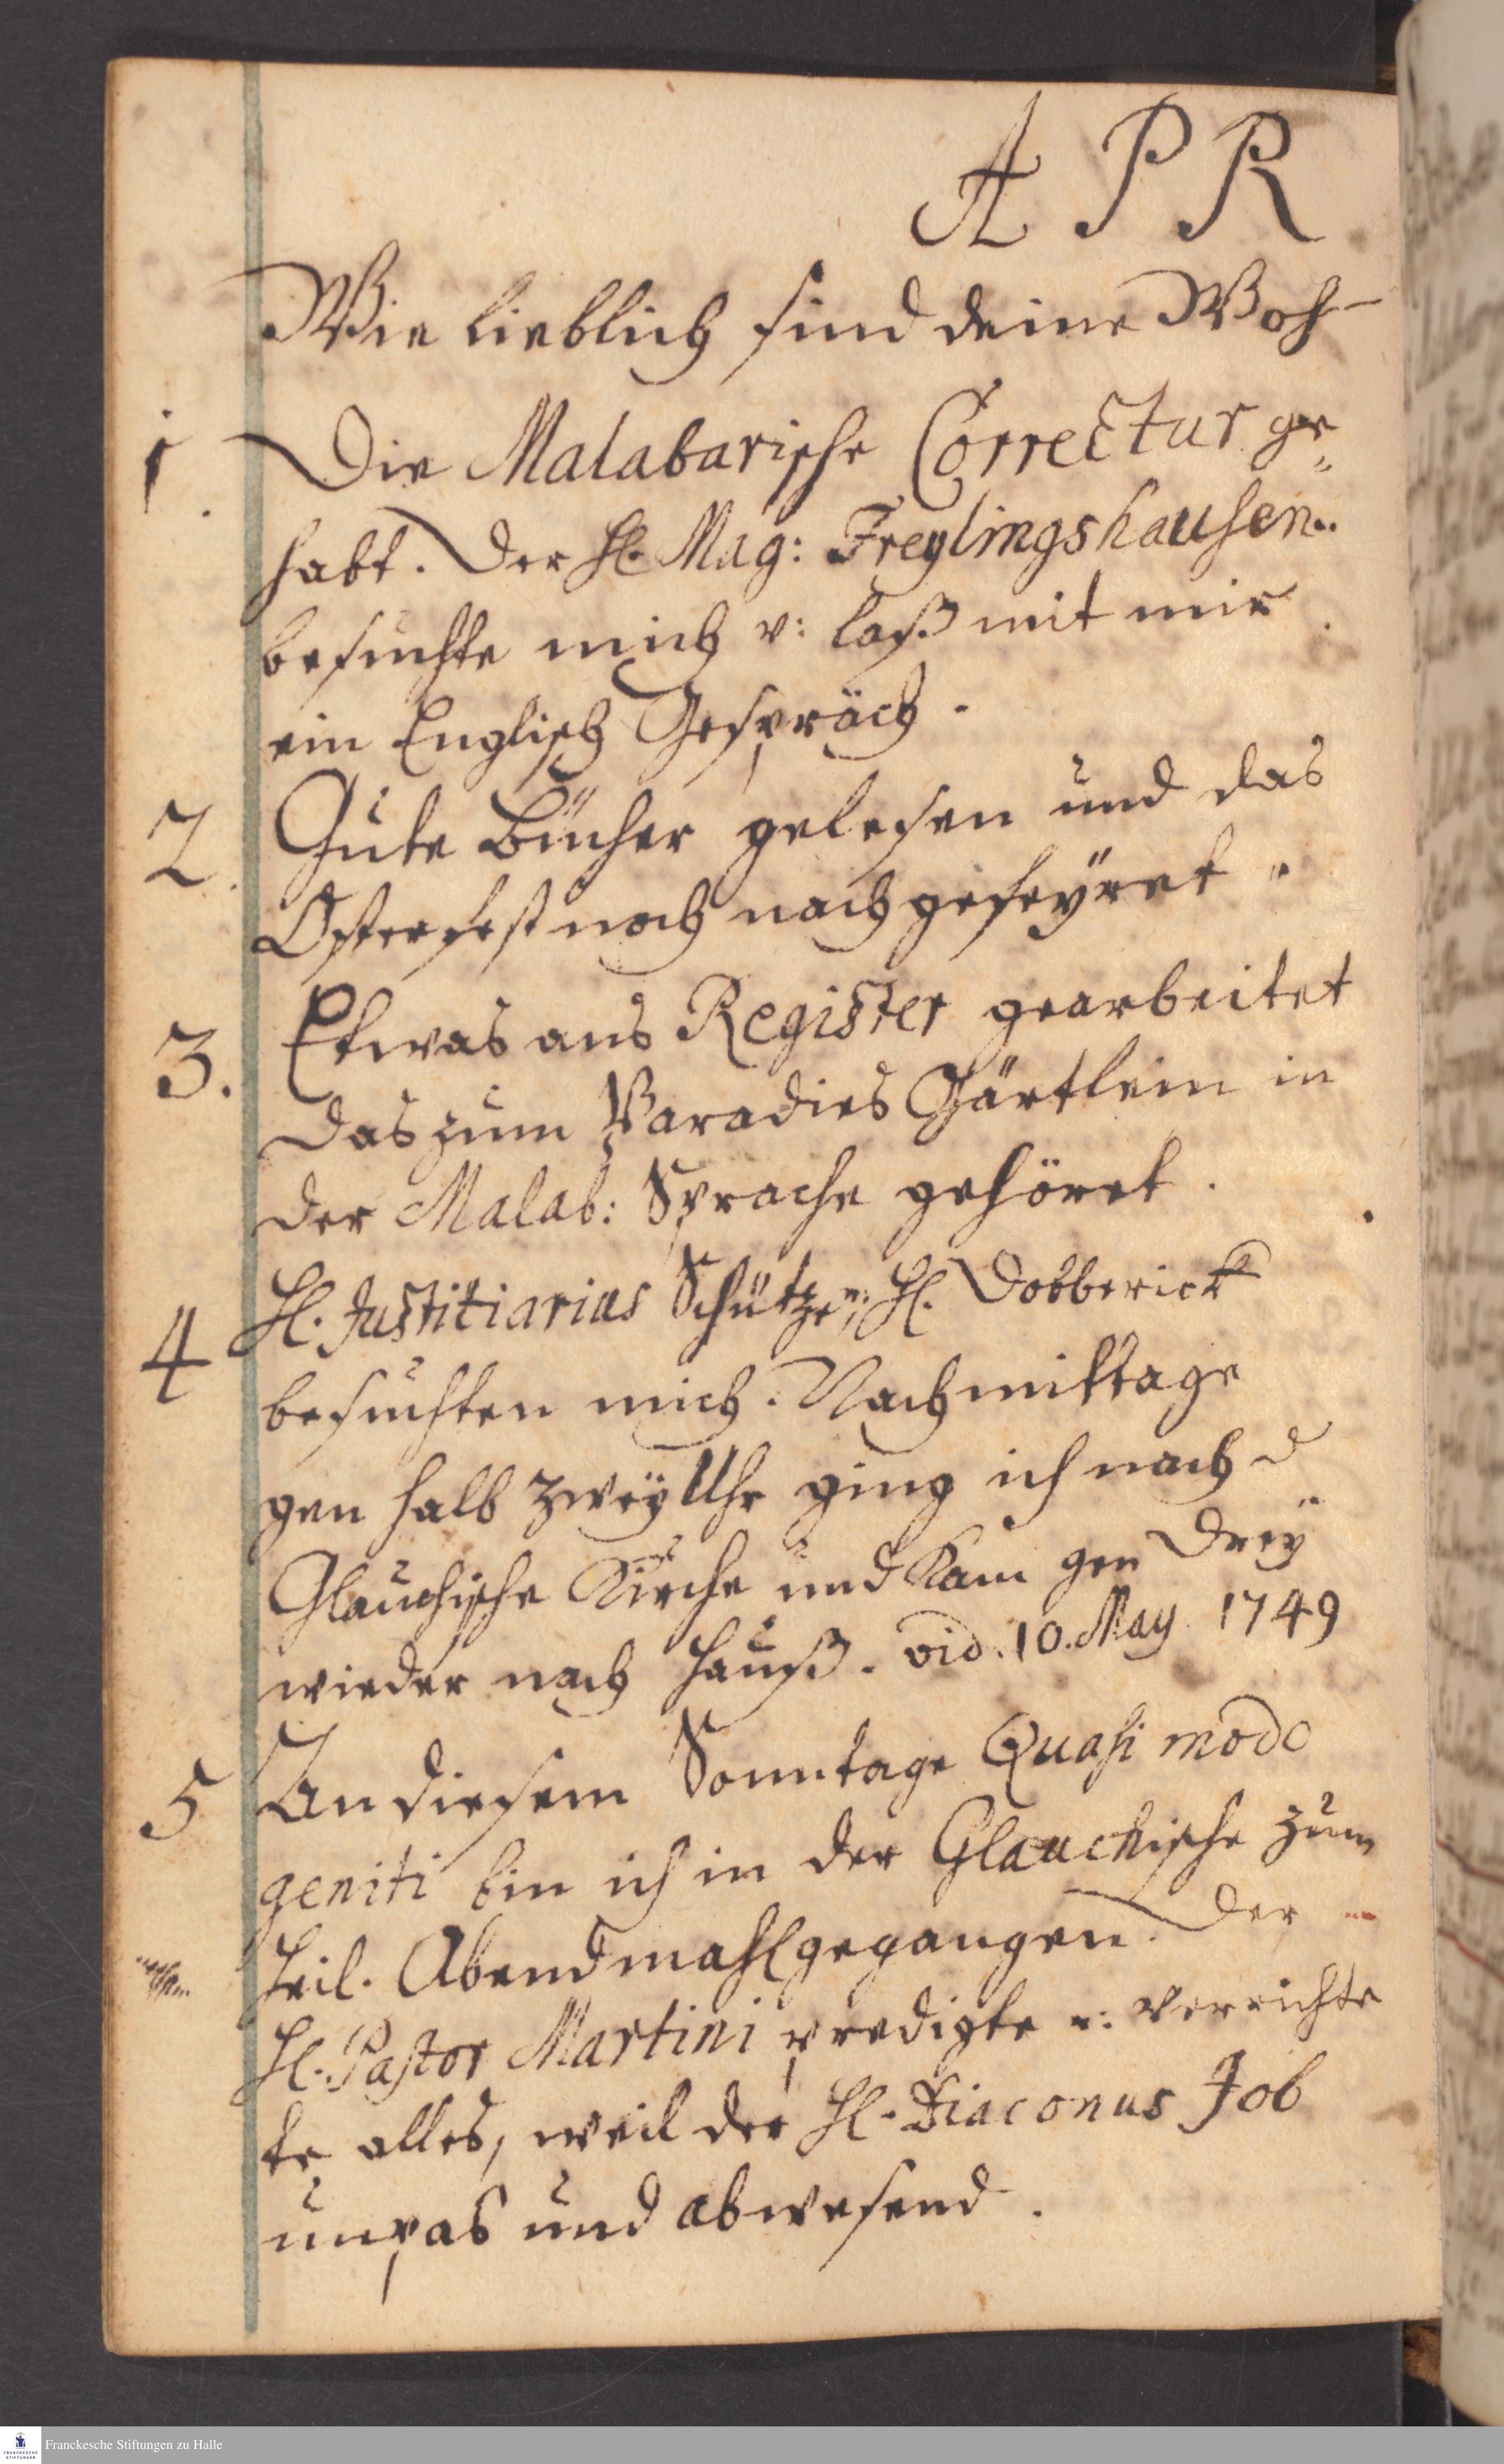 A P R
Wie lieblich sind deine Woh-
1. Die Malabarische Correctur ge„
habt. Der H. Mag: Freylingshausen
besuchte mich v: laß mit mir
ein Englisch Gespräch.
2. Gute Bücher gelesen und das
Osterfest noch nachgefeyret.
3. Etwas ans Register gearbeitet
das zum Paradies Gärtlein in
der Malab: Sprache gehöret.
4 H. Justitiarius Schütze, u: H. Dobberick
besuchten mich. Nachmittage
gen halb zwey Uhr ging ich nach d
Glauchische Kirche und kam gen drey
wieder nach Hauß. vid. 10. May 1749
5 An diesem Sonntage Quasi modo
geniti bin ich in der Glauchische zum
Heil. Abendmahl gegangen. Der
H. Pastor Martini predigte u: verrichte
te alles, weil der H. Diaconus Job
unpas und abwesend.
Franckesche Stiftungen zu Halle
FRANCKESCHE
STIFTUNGEN